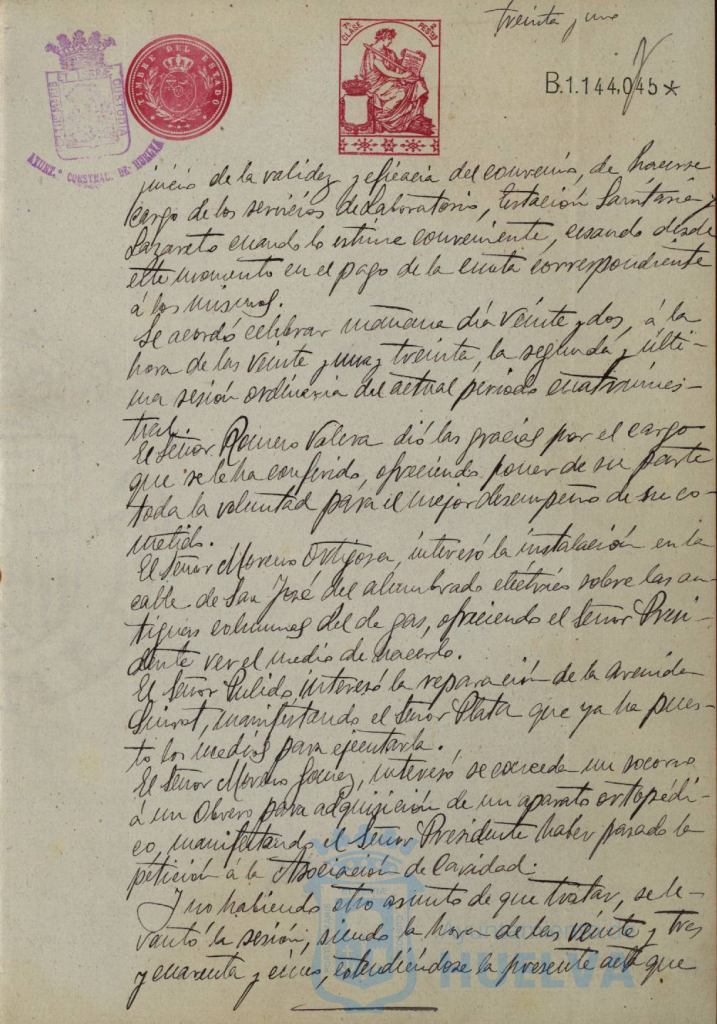 treinta y uno
7ª CLASE 2 PESTAS
TIMBRE DEL ESTADO
B.1.144,045*
PORTUS MARIS ET TERRAE CUSTODIA
AYUNT.º CONSTNAL. DE HUELVA
juicio de la validez y eficacia del convenio, de hacerse
cargo de los servicios de Laboratorio, Estación Sanitaria y
Lazareto cuando lo estime conveniente, cesando desde
este momento en el pago de la cuota correspondiente
á los mismos.
Se acordó celebrar mañana día veinte y dos, á la
hora de las veinte y una y treinta, la segunda y últi-
ma sesión ordinaria del actual período cuatrimes-
tral.
El Señor Romero Valera dió las gracias por el cargo
que se le ha conferido, ofreciendo poner de su parte
toda la voluntad para el mejor desempeño de su co-
metido.
El Señor Moreno Ortigosa, interesó la instalación en la
calle de San José del alumbrado eléctrico sobre las an-
tiguas columnas del de gas, ofreciendo el Señor Presi-
dente ver el medio de hacerlo.
El Señor Pulido, interesó la reparación de la avenida
Guirat, manifestando el Señor Plata que ya ha pues-
to los medios para ejecutarla.
El Señor Moreno Gomez, interesó se conceda un socorro
á un Obrero para adquisición de un aparato ortopédi-
co, manifestando el Señor Presidente haber pasado la
petición á la Asociación de Caridad.
Y no habiendo otro asunto de que tratar, se le-
vantó la sesión, siendo la hora de las veinte y tres
y cuarenta y cinco, extendiéndose la presente acta que
HUELVA